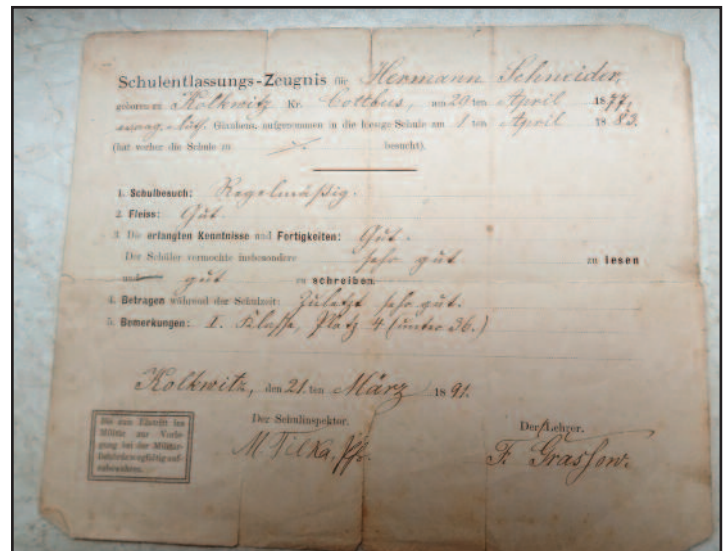 Schulentlassungs-Zeugnis für Hermann Schneider,
geboren zu Kolkwitz Kr. Cottbus, am 20 ten April 1877,
evang.-luth. Glaubens, aufgenommen in die hiesige Schule am 1 ten April 1883.
(hat vorher die Schule zu besucht).
1. Schulbesuch: Regelmäßig.
2. Fleiss: Gut.
3. Die erlangten Kenntnisse und Fertigkeiten: Gut.
Der Schüler vermochte insbesondere sehr gut zu lesen
und gut zu schreiben.
4. Betragen während der Schulzeit: Zuletzt sehr gut.
5. Bemerkungen: I. Klasse, Platz 4 (unter 36.)
Kolkwitz, den 21. ten März 1891.
Der Schulinspektor.
M. Tilka, Pfr.
Der Lehrer.
F. Grassow.
Bis zum Eintritt ins
Militär zur Vorle-
gung bei der Militär-
behörde sorgfältig auf-
zubewahren.